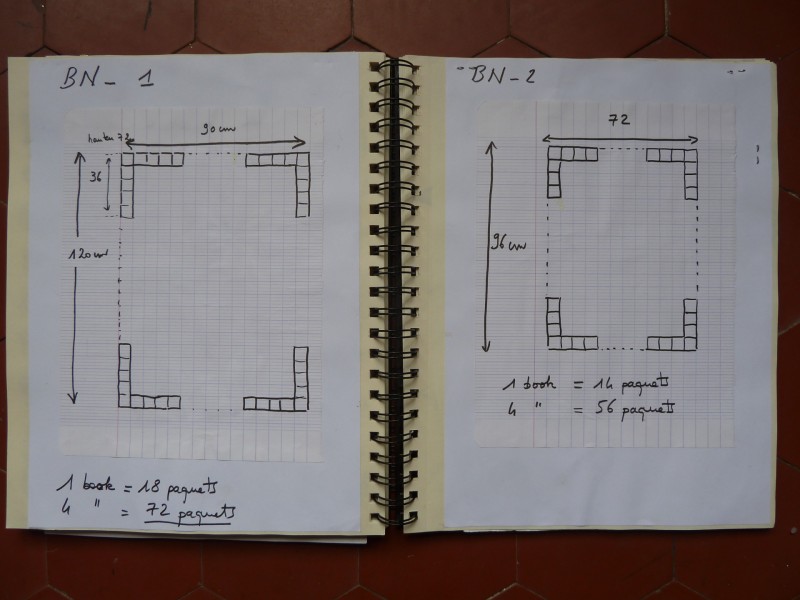 BN - 1
90 cm
36
120 cm
1 book = 18 paquets
4 " = 72 paquets
BN - 2
72
96 cm
1 book = 14 paquets
4 " = 56 paquets